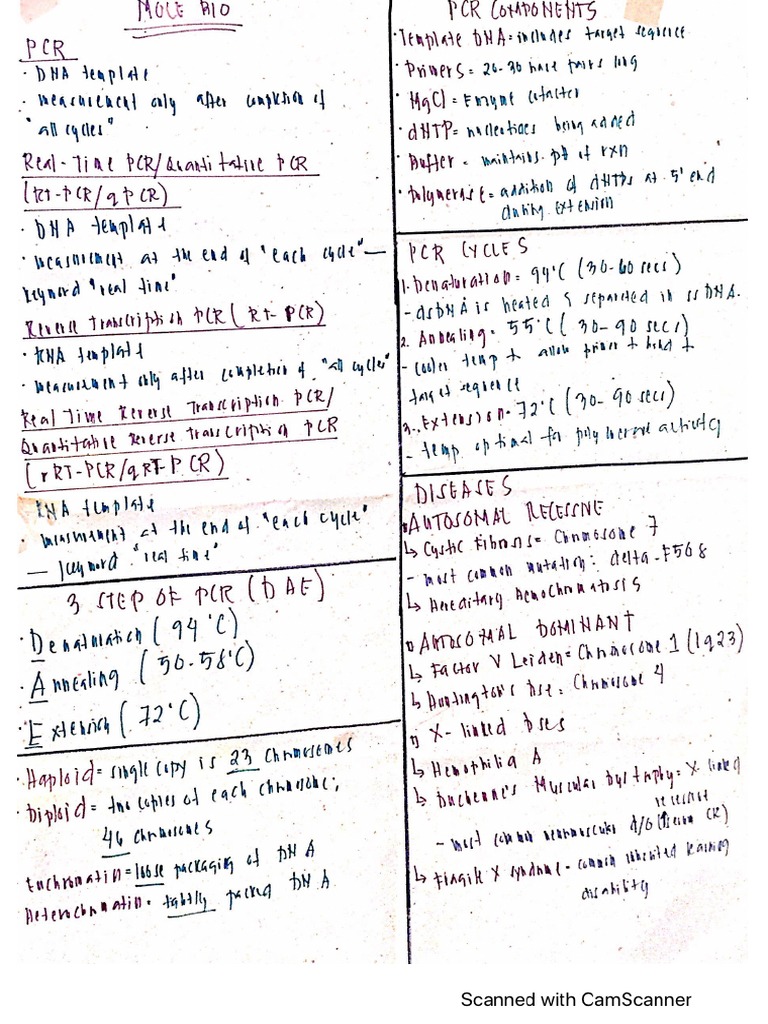 MOLE BIO
PCR
· DNA template
· measurement only after completion of
"all cycles"
Real-Time PCR/Quantitative PCR
(RT-PCR/qPCR)
· DNA template
· measurement at the end of "each cycle" —
keyword "real time"
Reverse Transcription PCR (RT-PCR)
· RNA template
· measurement only after completion of "all cycles"
Real Time Reverse Transcription PCR/
Quantitative Reverse Transcription PCR
(rRT-PCR/qRT-PCR)
· RNA template
· measurement at the end of "each cycle"
— keyword "real time"
3 STEP OF PCR (DAE)
· Denaturation (94°C)
· Annealing (50-58°C)
· Extension (72°C)
· Haploid = single copy is 23 chromosomes
· Diploid = two copies of each chromosome;
46 chromosomes
Euchromatin = loose packaging of DNA
Heterochromatin = tightly packed DNA
PCR COMPONENTS
· Template DNA = includes target sequence
· Primers = 20-30 base pairs long
· MgCl = Enzyme cofactor
· dNTP = nucleotides being added
· Buffer = maintains pH of rxn
· Polymerase = addition of dNTPs at 5' end
during extension
PCR CYCLES
1. Denaturation = 94°C (30-60 secs)
- dsDNA is heated & separated in ssDNA.
2. Annealing = 55°C (30-90 secs)
- cooler temp to allow primer to bind to
target sequence
3. Extension = 72°C (30-90 secs)
- temp optimal for polymerase activity
DISEASES
AUTOSOMAL RECESSIVE
↳ Cystic Fibrosis = Chromosome 7
- most common mutation: delta-F508
↳ Hereditary Hemochromatosis
AUTOSOMAL DOMINANT
↳ Factor V Leiden = Chromosome 1 (1q23)
↳ Huntington's dse = Chromosome 4
X-linked dses
↳ Hemophilia A
↳ Duchenne's Muscular Dystrophy = X linked
recessive
- most common neuromuscular d/o (CR)
↳ Fragile X syndrome - common inherited learning
disability
Scanned with CamScanner